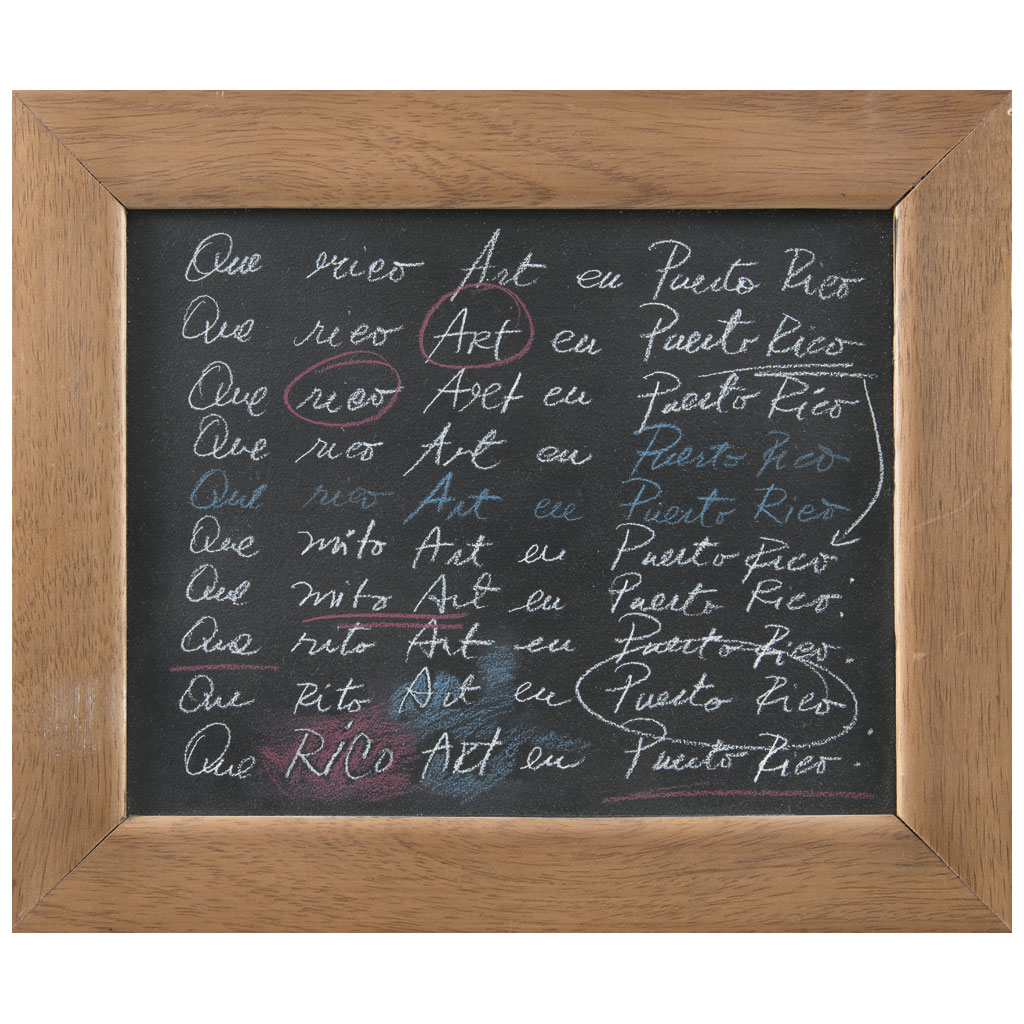 Que rico Art en Puerto Rico
Que rico Art en Puerto Rico
Que rico Art en Puerto Rico
Que rico Art en Puerto Rico
Que rico Art en Puerto Rico
Que mito Art en Puerto Rico.
Que mito Art en Puerto Rico.
Que rito Art en Puerto Rico.
Que Rito Art en Puerto Rico
Que RiCo Art en Puerto Rico.